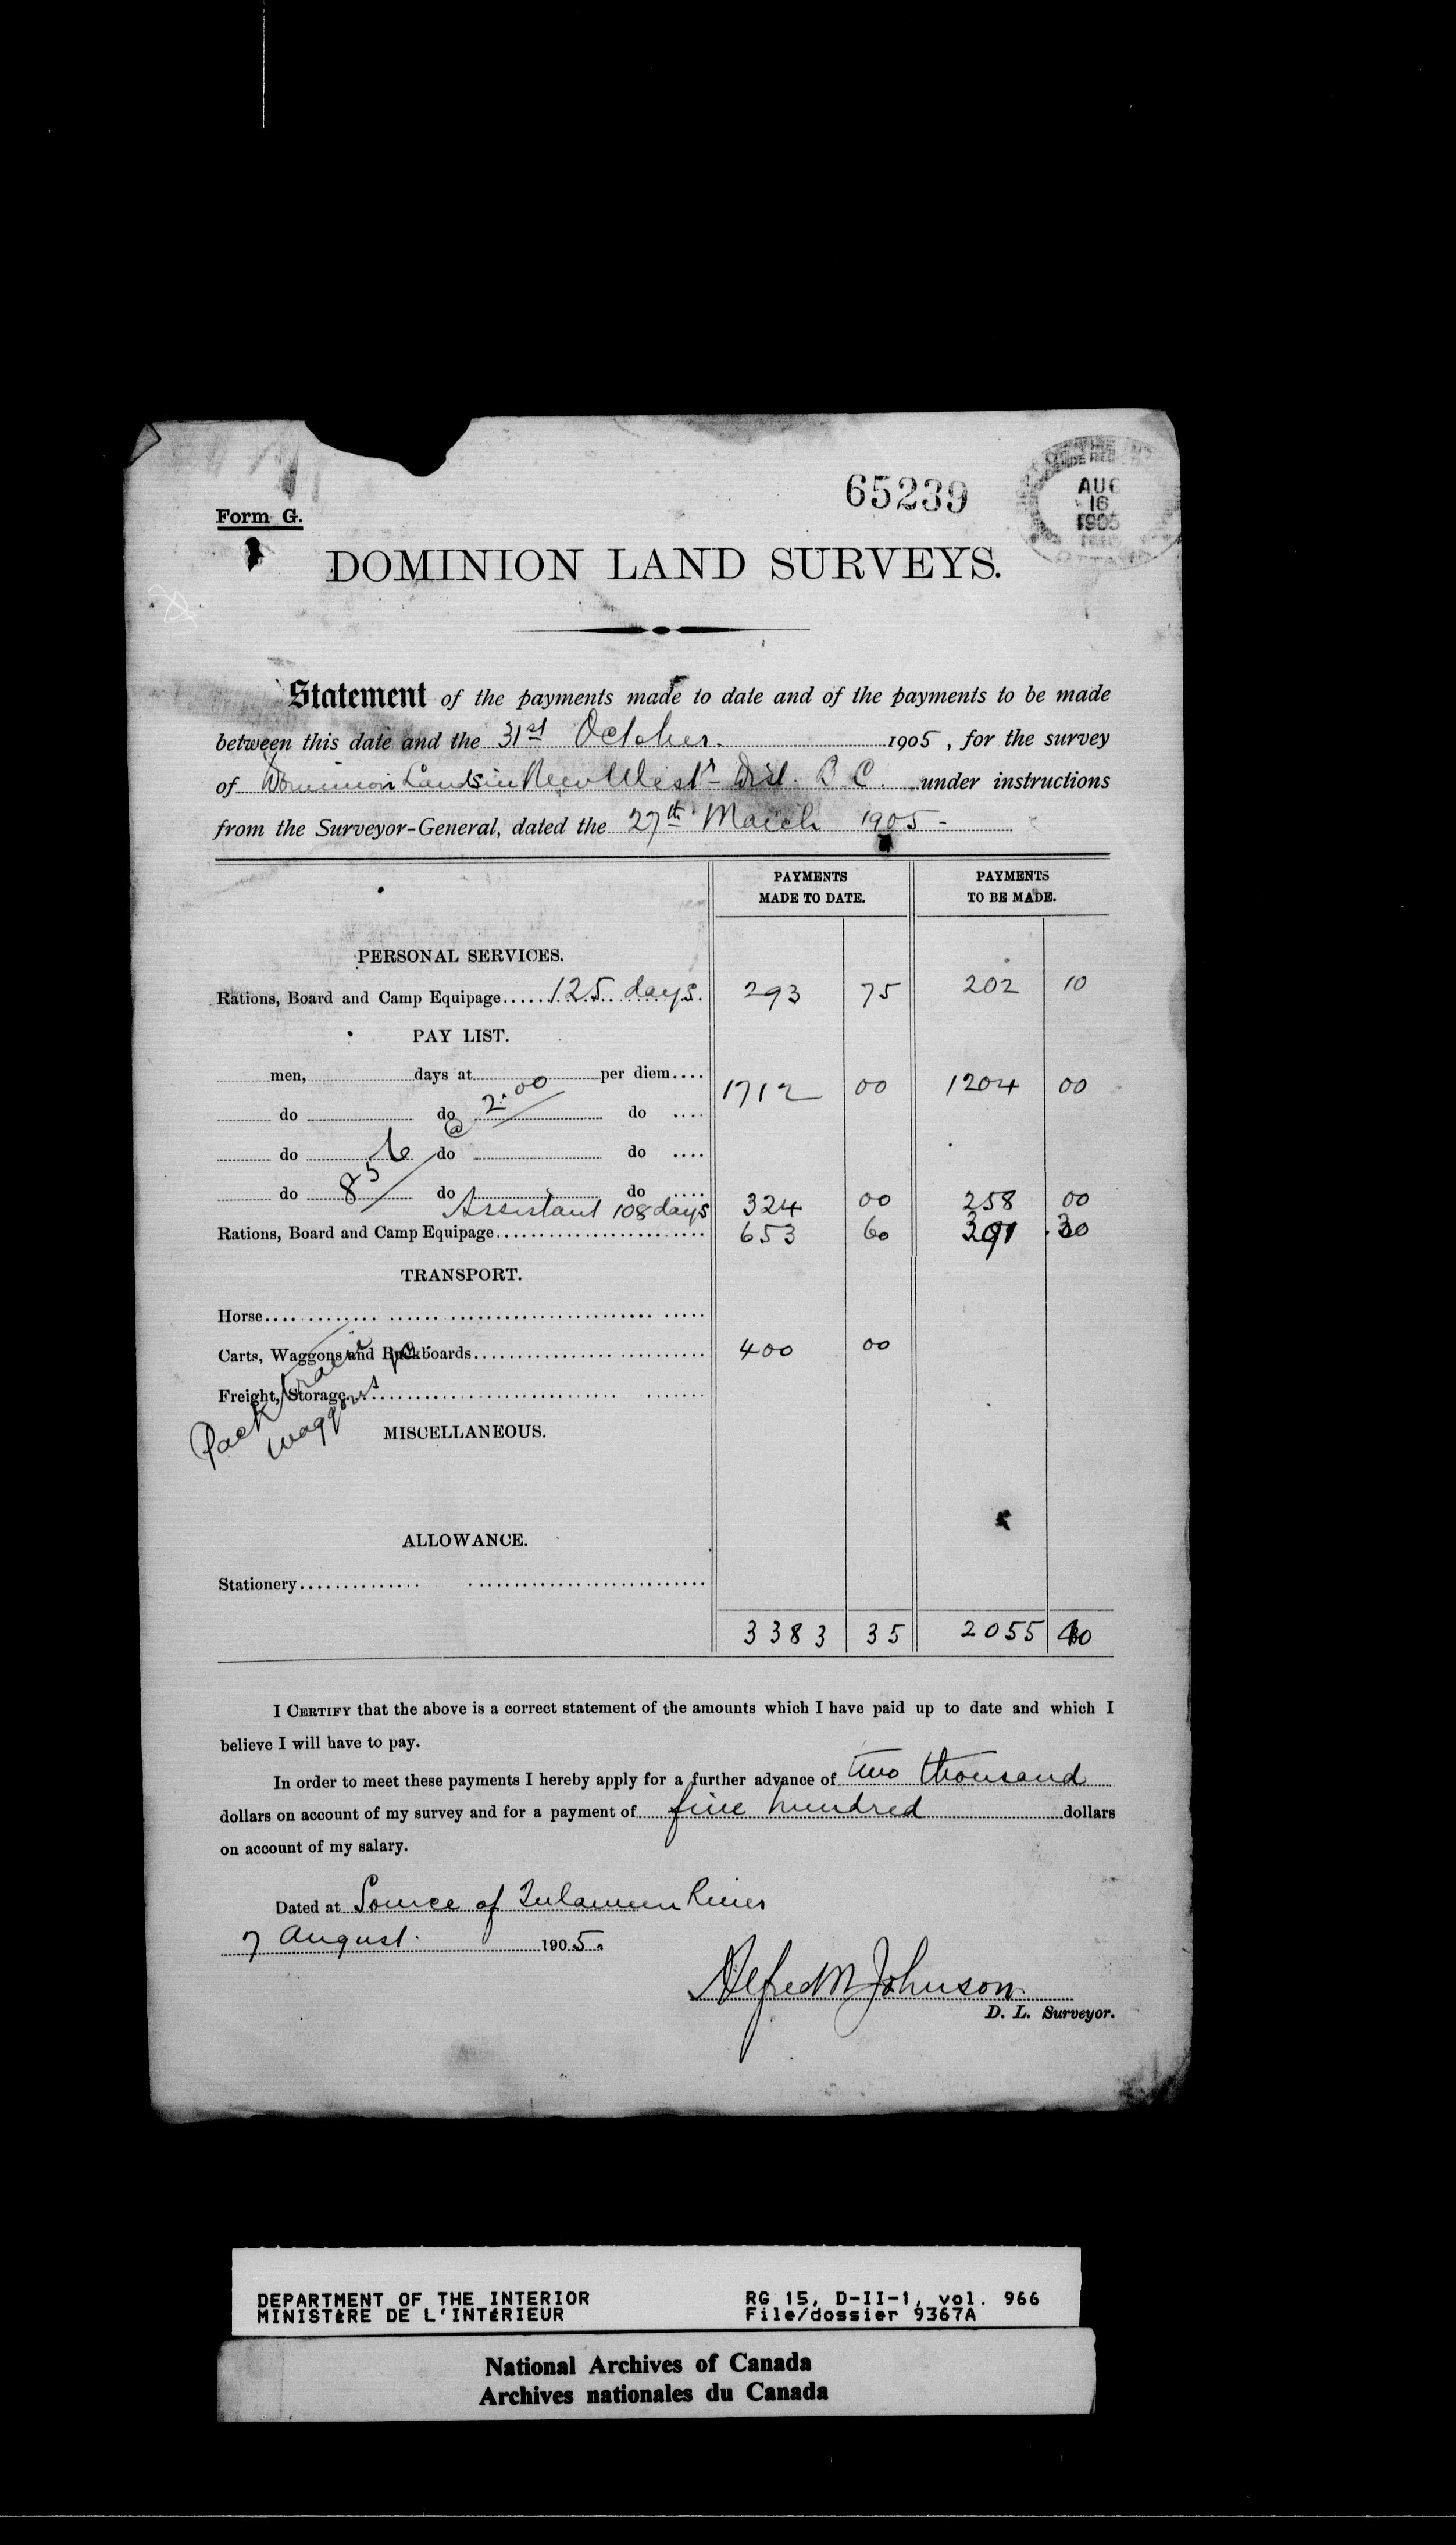 65239
AUG
16
1905
Form G.
DOMINION LAND SURVEYS.
Statement of the payments made to date and of the payments to be made
between this date and the 31st October. 1905, for the survey
of Dominion Lands in New Westr Dist. B C. under instructions
from the Surveyor-General, dated the 27th March 1905 -
PAYMENTS MADE TO DATE. PAYMENTS TO BE MADE.
PERSONAL SERVICES.
Rations, Board and Camp Equipage 125 days. 293 75 202 10
PAY LIST.
men, days at per diem 1712 00 1204 00
do do @ 2.00 do
do do do
do 856 do do
Assistant 108 days 324 00 258 00
Rations, Board and Camp Equipage 653 60 391 30
TRANSPORT.
Horse
Carts, Waggons and Buckboards 400 00
Freight, Storage
Pack
waggons
MISCELLANEOUS.
ALLOWANCE.
Stationery
3383 35 2055 40
I CERTIFY that the above is a correct statement of the amounts which I have paid up to date and which I
believe I will have to pay.
In order to meet these payments I hereby apply for a further advance of two thousand
dollars on account of my survey and for a payment of five hundred dollars
on account of my salary.
Dated at Source of Tulameen River
7 August. 1905.
Alfred M Johnson
D. L. Surveyor.
DEPARTMENT OF THE INTERIOR RG 15, D-II-1, vol. 966
MINISTÈRE DE L'INTÉRIEUR File/dossier 9367A
National Archives of Canada
Archives nationales du Canada